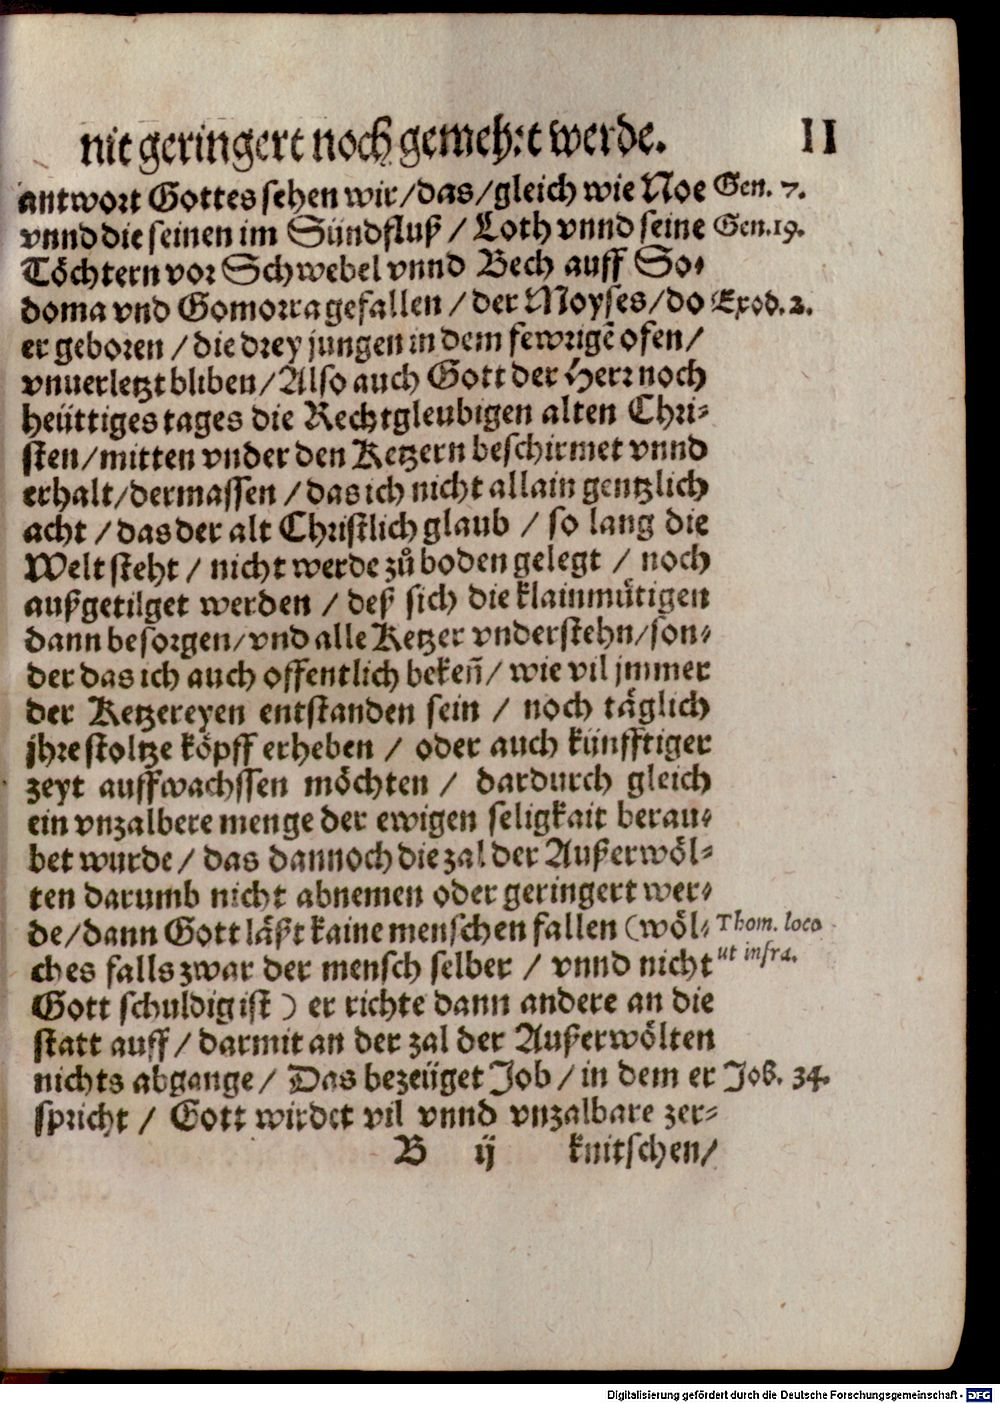 nit geringert noch gemehrt werde. 11
antwort Gottes sehen wir/das/gleich wie Noe Gen. 7.
vnnd die seinen im Sündfluß / Loth vnnd seine Gen. 19.
Töchtern vor Schwebel vnnd Bech auff So-
doma vnd Gomorra gefallen / der Moyses/do Exod. 2.
er geboren / die drey jungen in dem fewrigẽ ofen/
vnuerletzt bliben/Also auch Gott der Herr noch
heüttiges tages die Rechtgleubigen alten Chri-
sten/mitten vnder den Ketzern beschirmet vnnd
erhalt/dermassen / das ich nicht allain gentzlich
acht / das der alt Christlich glaub / so lang die
Welt steht / nicht werde zů boden gelegt / noch
außgetilget werden / deß sich die klainmütigen
dann besorgen/vnd alle Ketzer vnderstehn/son-
der das ich auch offentlich bekeñ/ wie vil jmmer
der Ketzereyen entstanden sein / noch täglich
jhre stoltze köpff erheben / oder auch künfftiger
zeyt auffwachssen möchten / dardurch gleich
ein vnzalbere menge der ewigen seligkait berau-
bet wurde / das dannoch die zal der Außerwöl-
ten darumb nicht abnemen oder geringert wer-
de/dann Gott läßt kaine menschen fallen (wöl- Thom. loco
ches falls zwar der mensch selber / vnnd nicht ut infra.
Gott schuldig ist ) er richte dann andere an die
statt auff / darmit an der zal der Außerwölten
nichts abgange / Das bezeüget Job / in dem er Job. 34.
spricht / Gott wirdet vil vnnd vnzalbare zer-
B ij knitschen/
Digitalisierung gefördert durch die Deutsche Forschungsgemeinschaft - DFG